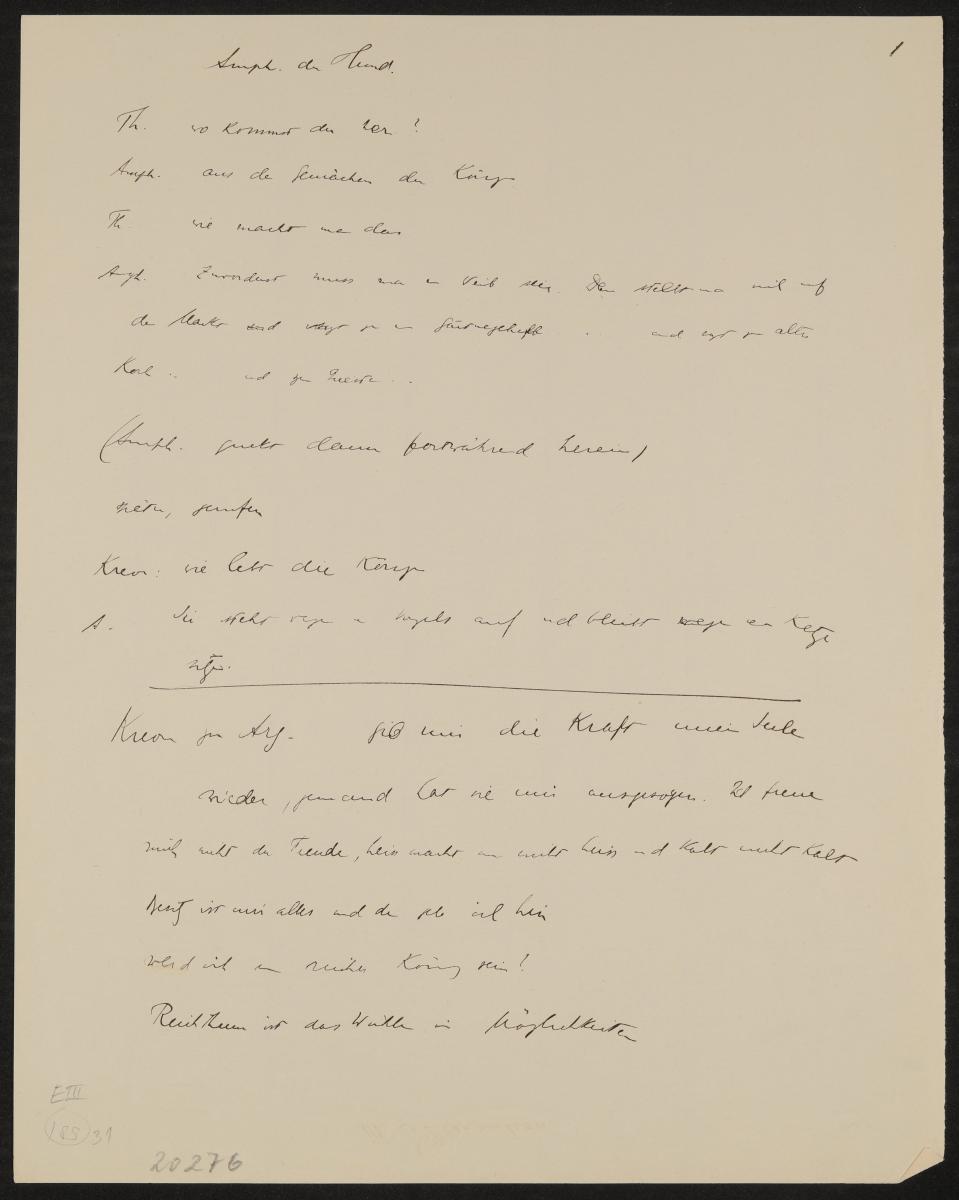 1
Amph. der Hund.
Th. wo kommst du her?
Amph. aus den Gemächern der Königin
Th. wie macht man das
Amph. Zuvorderst muss man ein Weib sein. Dann stellt man sich auf
den Markt und sagt zu und sagt zur alten
Kork .. und zum ..
(Amph. guckt dann fortwährend herein)
gerufen
Kreon: wie lebt die Königin
A. Sie steht wegen eines Vogels auf und bleibt wegen einer Katze
sitzen.
Kreon zu Arz. gib mir die Kraft meiner Seele
wieder, jemand hat sie mir ausgesogen. Ich freue
mich nicht der Freude, heiss macht mir nicht heiss und Kalt nicht Kalt
Besitz ist mir alles und den gebe ich hin
werd ich ein reicher König sein!
Reichthum ist das Wühlen in Möglichkeiten
EIII
185 31
20276